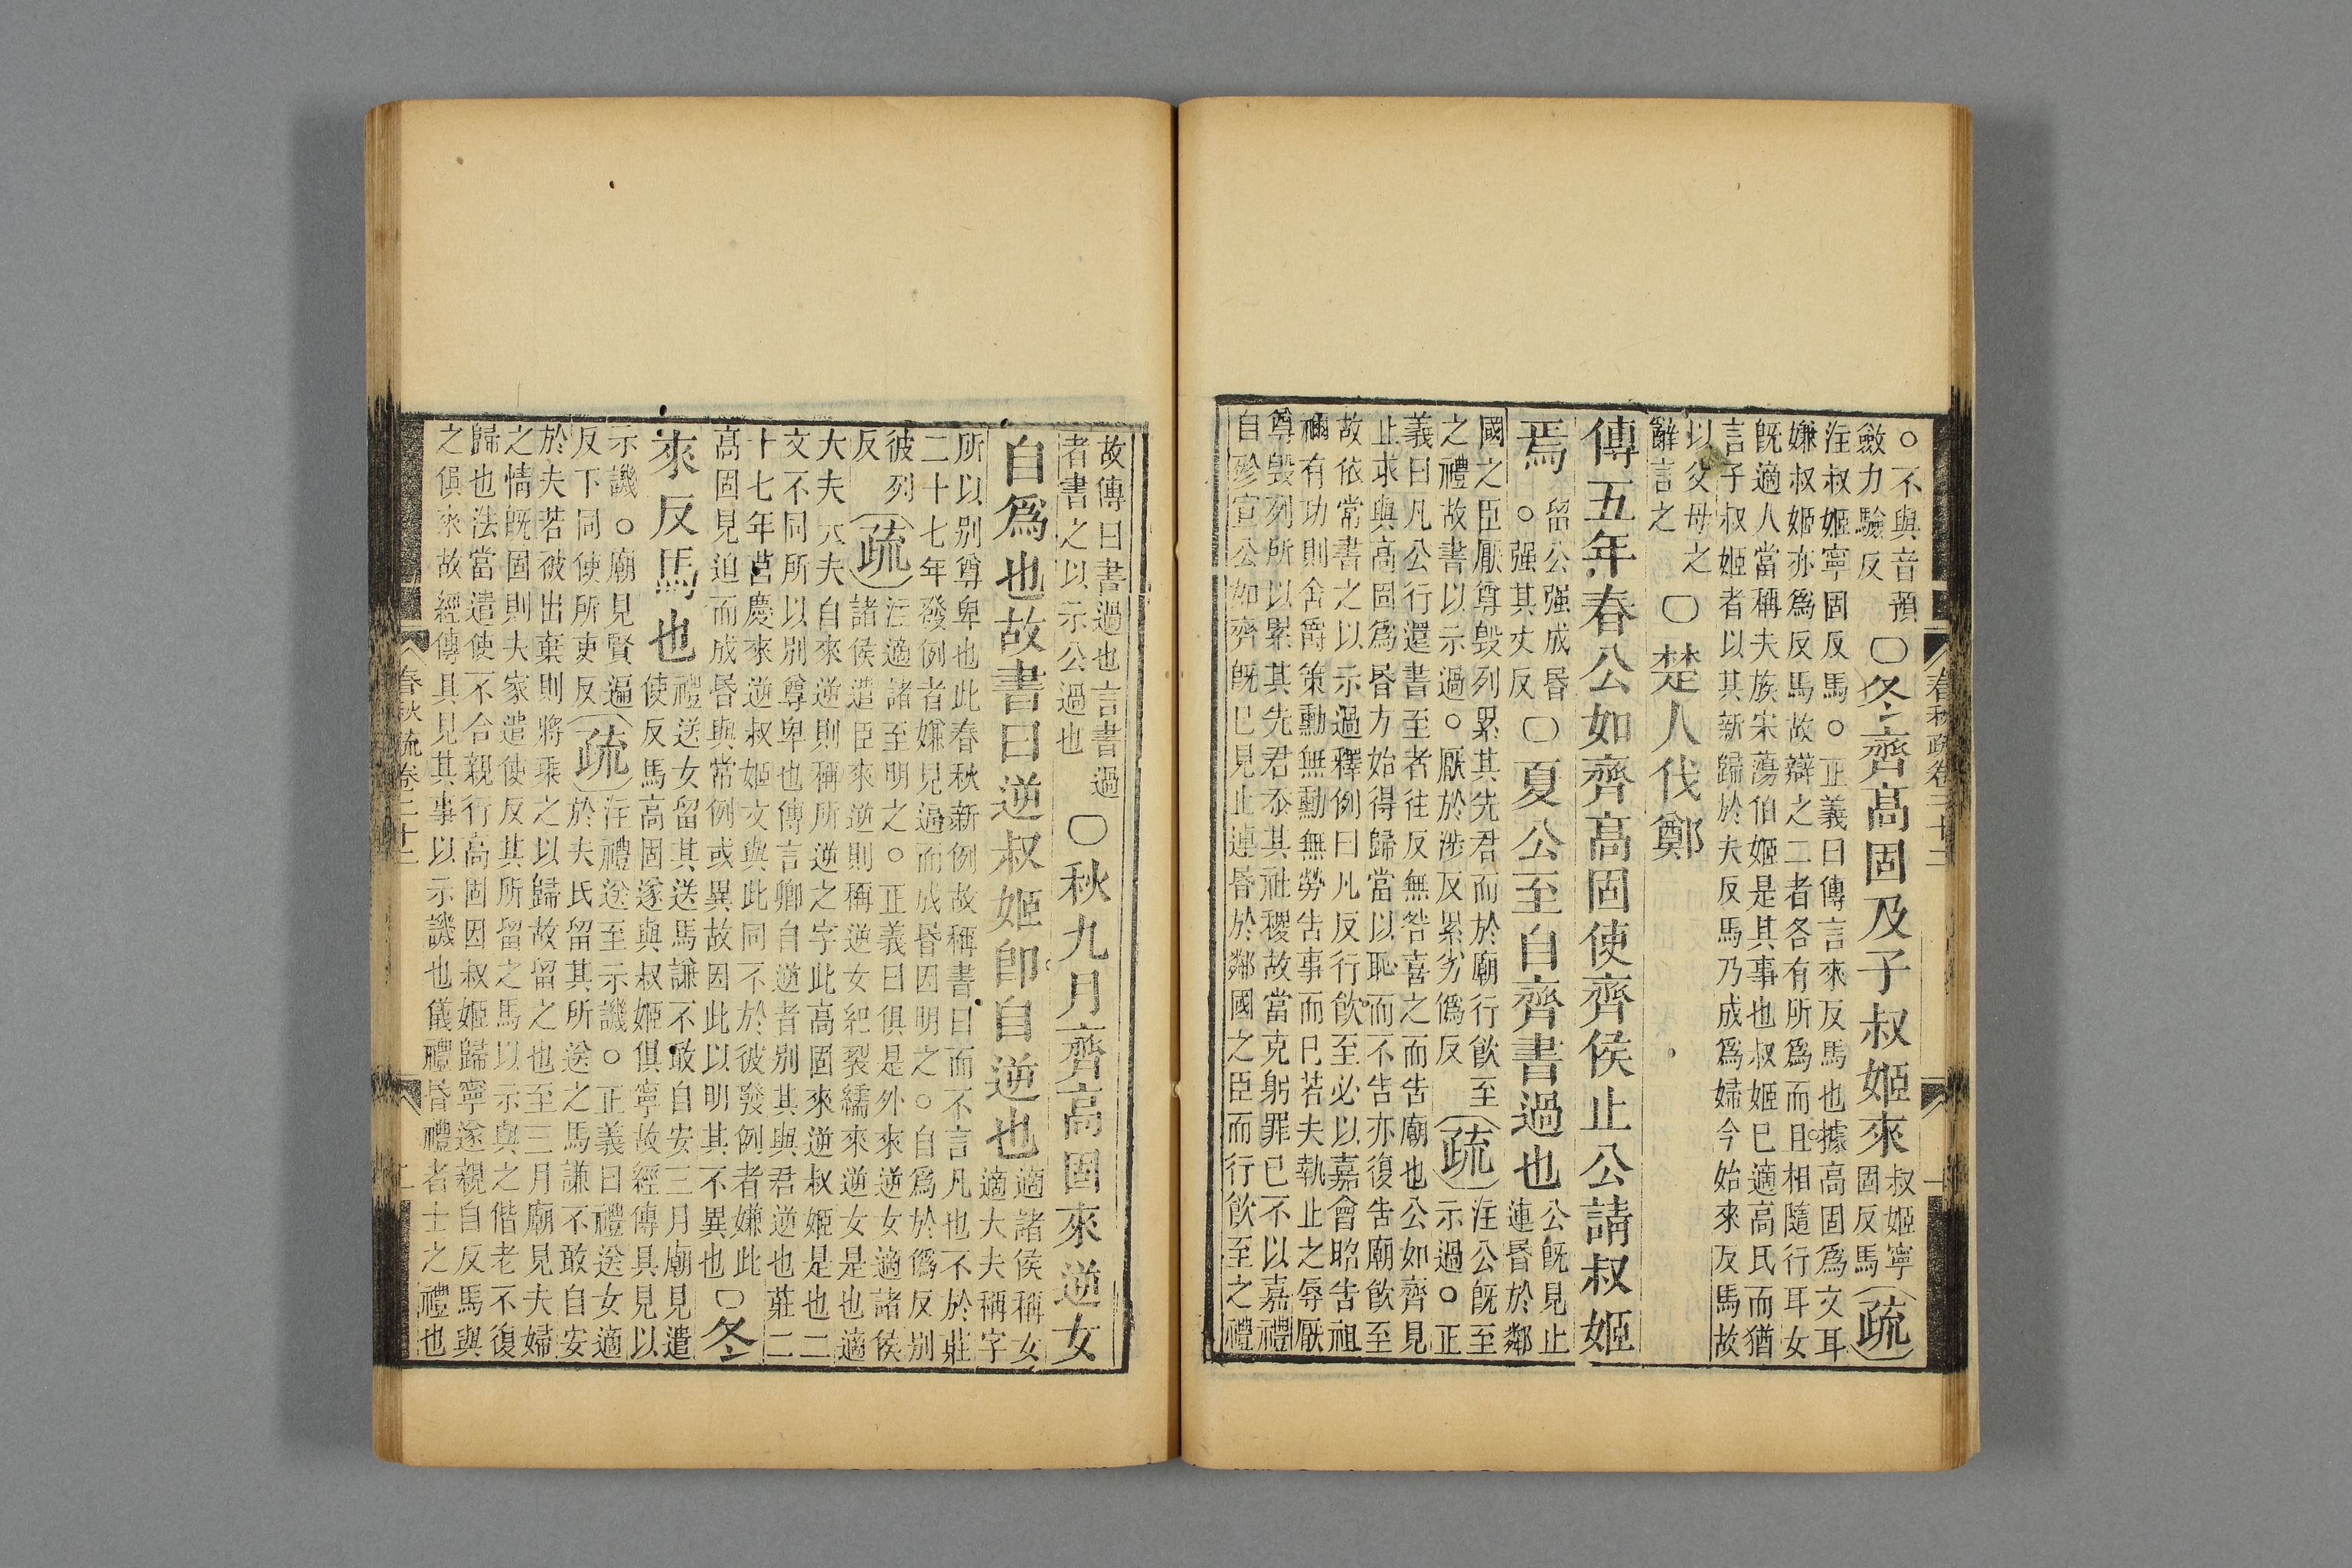 ○不與音預
斂力驗反
○冬齊高固及子叔姬來
叔姬寧
固反馬
疏
注叔姬寧固反馬○正義曰傳言來反馬也據高固爲文耳
嫌叔姬亦爲反馬故辯之二者各有所爲而且相隨行耳女
旣適人當稱夫族宋蕩伯姬是其事也叔姬巳適高氏而猶
言子叔姬者以其新歸於夫反馬乃成爲婦今始來反馬故
以父母之
辭言之
○楚人伐鄭
傳五年春公如齊高固使齊侯止公請叔姬
焉
留公强成昬
○强其丈反
○夏公至自齊書過也
公旣見止
連昬於鄰
國之臣厭尊毁列累其先君而於廟行飮至
之禮故書以示過○厭於涉反累劣僞反
疏
注公旣至
示過○正
義曰凡公行還書至者往反無咎喜之而告廟也公如齊見
止求與高固爲昬方始得歸當以恥而不告亦復告廟飮至
故依常書之以示過釋例曰凡反行飮至必以嘉會昭告祖
禰有功則舍爵策勳無勳無勞告事而巳若夫執止之辱厭
尊毁列所以累其先君忝其社稷故當克躬罪已不以嘉禮
自殄宣公如齊旣巳見止連昬於鄰國之臣而行飮至之禮
春秋疏卷二十二
故傳曰書過也言書過
者書之以示公過也
○秋九月齊高固來逆女
自爲也故書曰逆叔姬卽自逆也
適諸侯稱女
適大夫稱字
所以别尊卑也此春秋新例故稱書曰而不言凡也不於莊
二十七年發例者嫌見逼而成昬因明之○自爲於僞反别
彼列
反
疏
注適諸至明之○正義曰俱是外來逆女適諸侯
諸侯遣臣來逆則稱逆女紀裂繻來逆女是也適
大夫大夫自來逆則稱所逆之字此高固來逆叔姬是也二
文不同所以别尊卑也傳言卿自逆者别其與君逆也莊二
十七年莒慶來逆叔姬文與此同不於彼發例者嫌此
高固見迫而成昬與常例或異故因此以明其不異也
○冬
來反馬也
禮送女留其送馬謙不敢自安三月廟見遣
使反馬高固遂與叔姬俱寧故經傳具見以
示譏○廟見賢遍
反下同使所吏反
疏
注禮送至示譏○正義曰禮送女適
於夫氏留其所送之馬謙不敢自安
於夫若被出棄則將乘之以歸故留之也至三月廟見夫婦
之情旣固則夫家遣使反其所留之馬以示與之偕老不復
歸也法當遣使不合親行高固因叔姬歸寧遂親自反馬與
之俱來故經傳具見其事以示譏也儀禮昬禮者士之禮也
春秋疏卷二十二